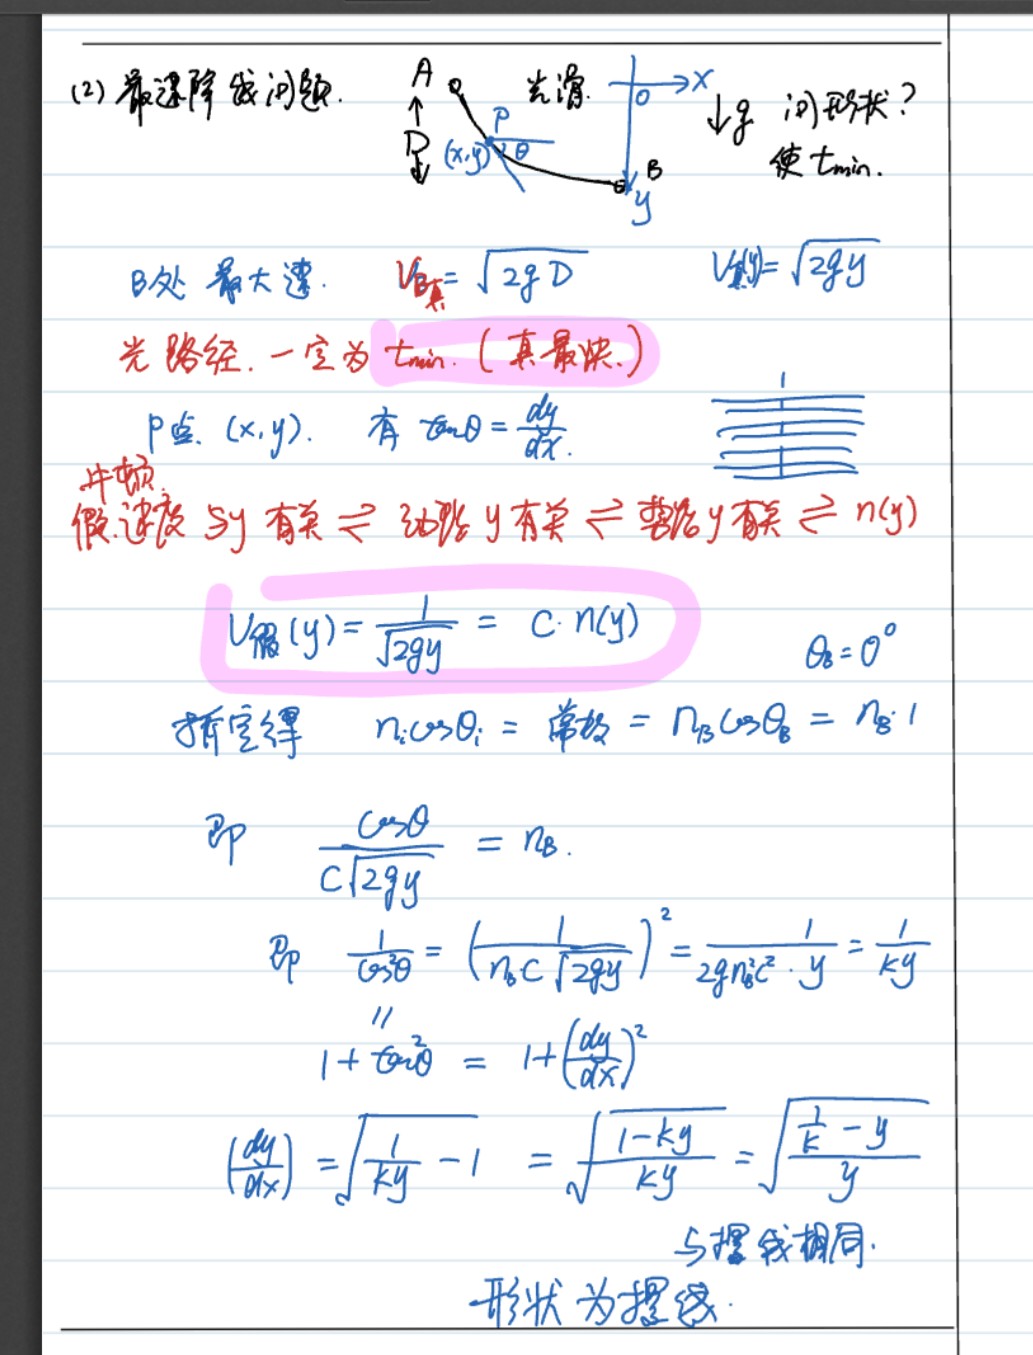 (2) 最速降线问题.
A
D
P
(x,y)
θ
光滑.
O
x
B
y
↓g 问形状?
使 tmin.
B处 最大速. V_B真 = √(2gD) V真(y) = √(2gy)
光路径. 一定为 tmin. (真最快.)
P点. (x,y). 有 tanθ = dy/dx.
牛顿
假速度与y有关 ⇌ 动能y有关 ⇌ 势能y有关 ⇌ n(y)
V假(y) = 1/√(2gy) = C·n(y)
θ_B = 0°
折定得 nᵢcosθᵢ = 常数 = n_B cosθ_B = n_B·1
即 cosθ/(C√(2gy)) = n_B.
即 1/cos²θ = (1/(n_B C√(2gy)))² = 1/(2g n_B² C²·y) = 1/(ky)
〃
1 + tan²θ = 1 + (dy/dx)²
(dy/dx) = √(1/(ky) − 1) = √((1−ky)/(ky)) = √((1/k − y)/y)
与摆线相同.
形状为摆线.